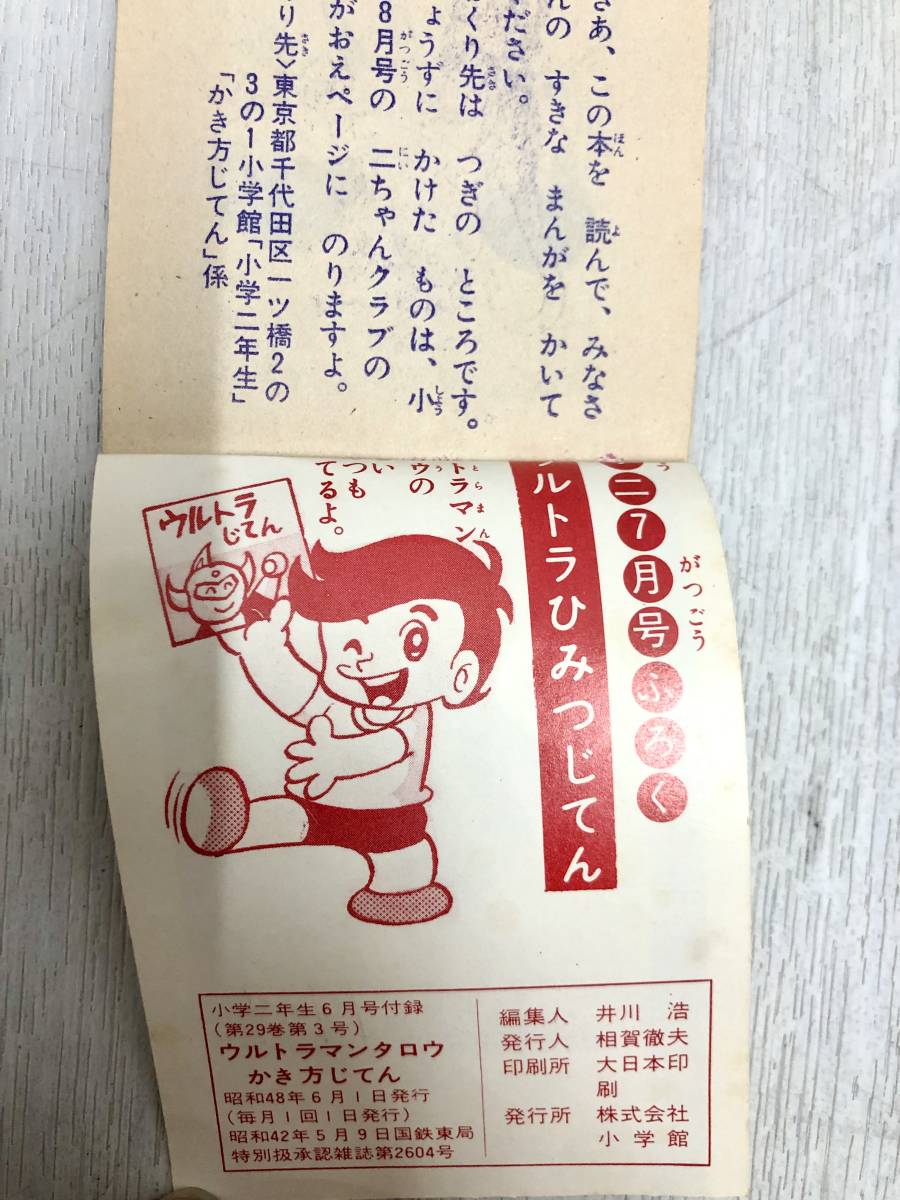 さあ、この本を 読んで、みなさ
んの すきな まんがを かいて
ください。
くり先は つぎの ところです。
ょうずに かけた ものは、小
8月号の 二ちゃんクラブの
がおえページに のりますよ。
り先〉東京都千代田区一ツ橋2の
3の1小学館「小学二年生」
「かき方じてん」係
二7月号ふろく
ルトラひみつじてん
トラマン
ウの
い
つも
てるよ。
ウルトラ
じてん
小学二年生6月号付録
(第29巻第3号)
ウルトラマンタロウ
かき方じてん
昭和48年6月1日発行
(毎月1回1日発行)
昭和42年5月9日国鉄東局
特別扱承認雑誌第2604号
編集人 井川 浩
発行人 相賀徹夫
印刷所 大日本印
刷
発行所 株式会社
小学館